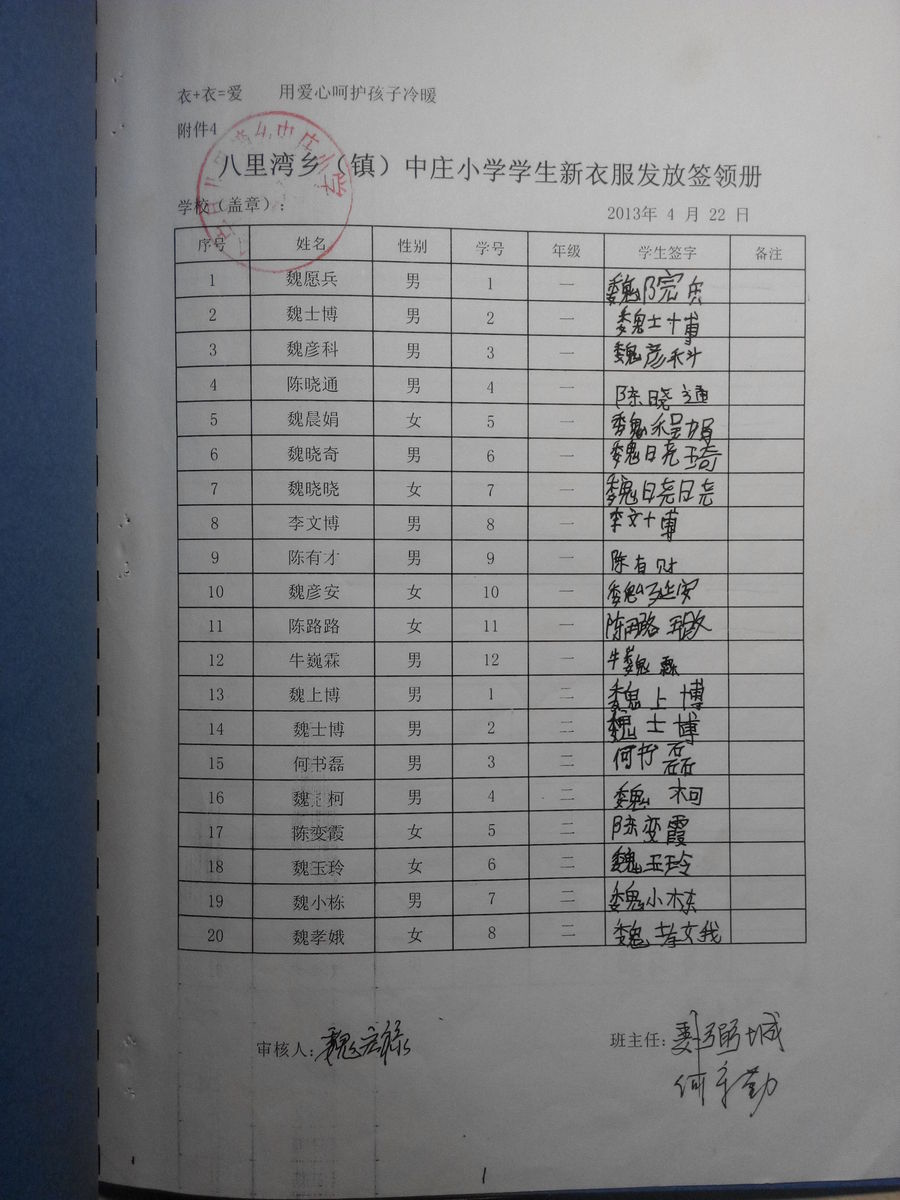 衣+衣=爱 用爱心呵护孩子冷暖
附件4
八里湾乡（镇）中庄小学学生新衣服发放签领册
学校（盖章）： 2013年 4 月 22 日
序号 姓名 性别 学号 年级 学生签字 备注
1 魏愿兵 男 1 一 魏 兵
2 魏士博 男 2 一 魏士博
3 魏彦科 男 3 一 魏彦科
4 陈晓通 男 4 一 陈晓通
5 魏晨娟 女 5 一 魏
6 魏晓奇 男 6 一 魏晓琦
7 魏晓晓 女 7 一 魏晓晓
8 李文博 男 8 一 李文博
9 陈有才 男 9 一 陈有财
10 魏彦安 女 10 一 魏
11 陈路路 女 11 一 陈
12 牛巍霖 男 12 一 牛巍霖
13 魏上博 男 1 二 魏上博
14 魏士博 男 2 二 魏士博
15 何书磊 男 3 二 何书磊
16 魏 柯 男 4 二 魏 柯
17 陈变霞 女 5 二 陈变霞
18 魏玉玲 女 6 二 魏玉玲
19 魏小栋 男 7 二 魏小栋
20 魏孝娥 女 8 二 魏孝娥
审核人: 魏宏禄 班主任:
何 勤
1